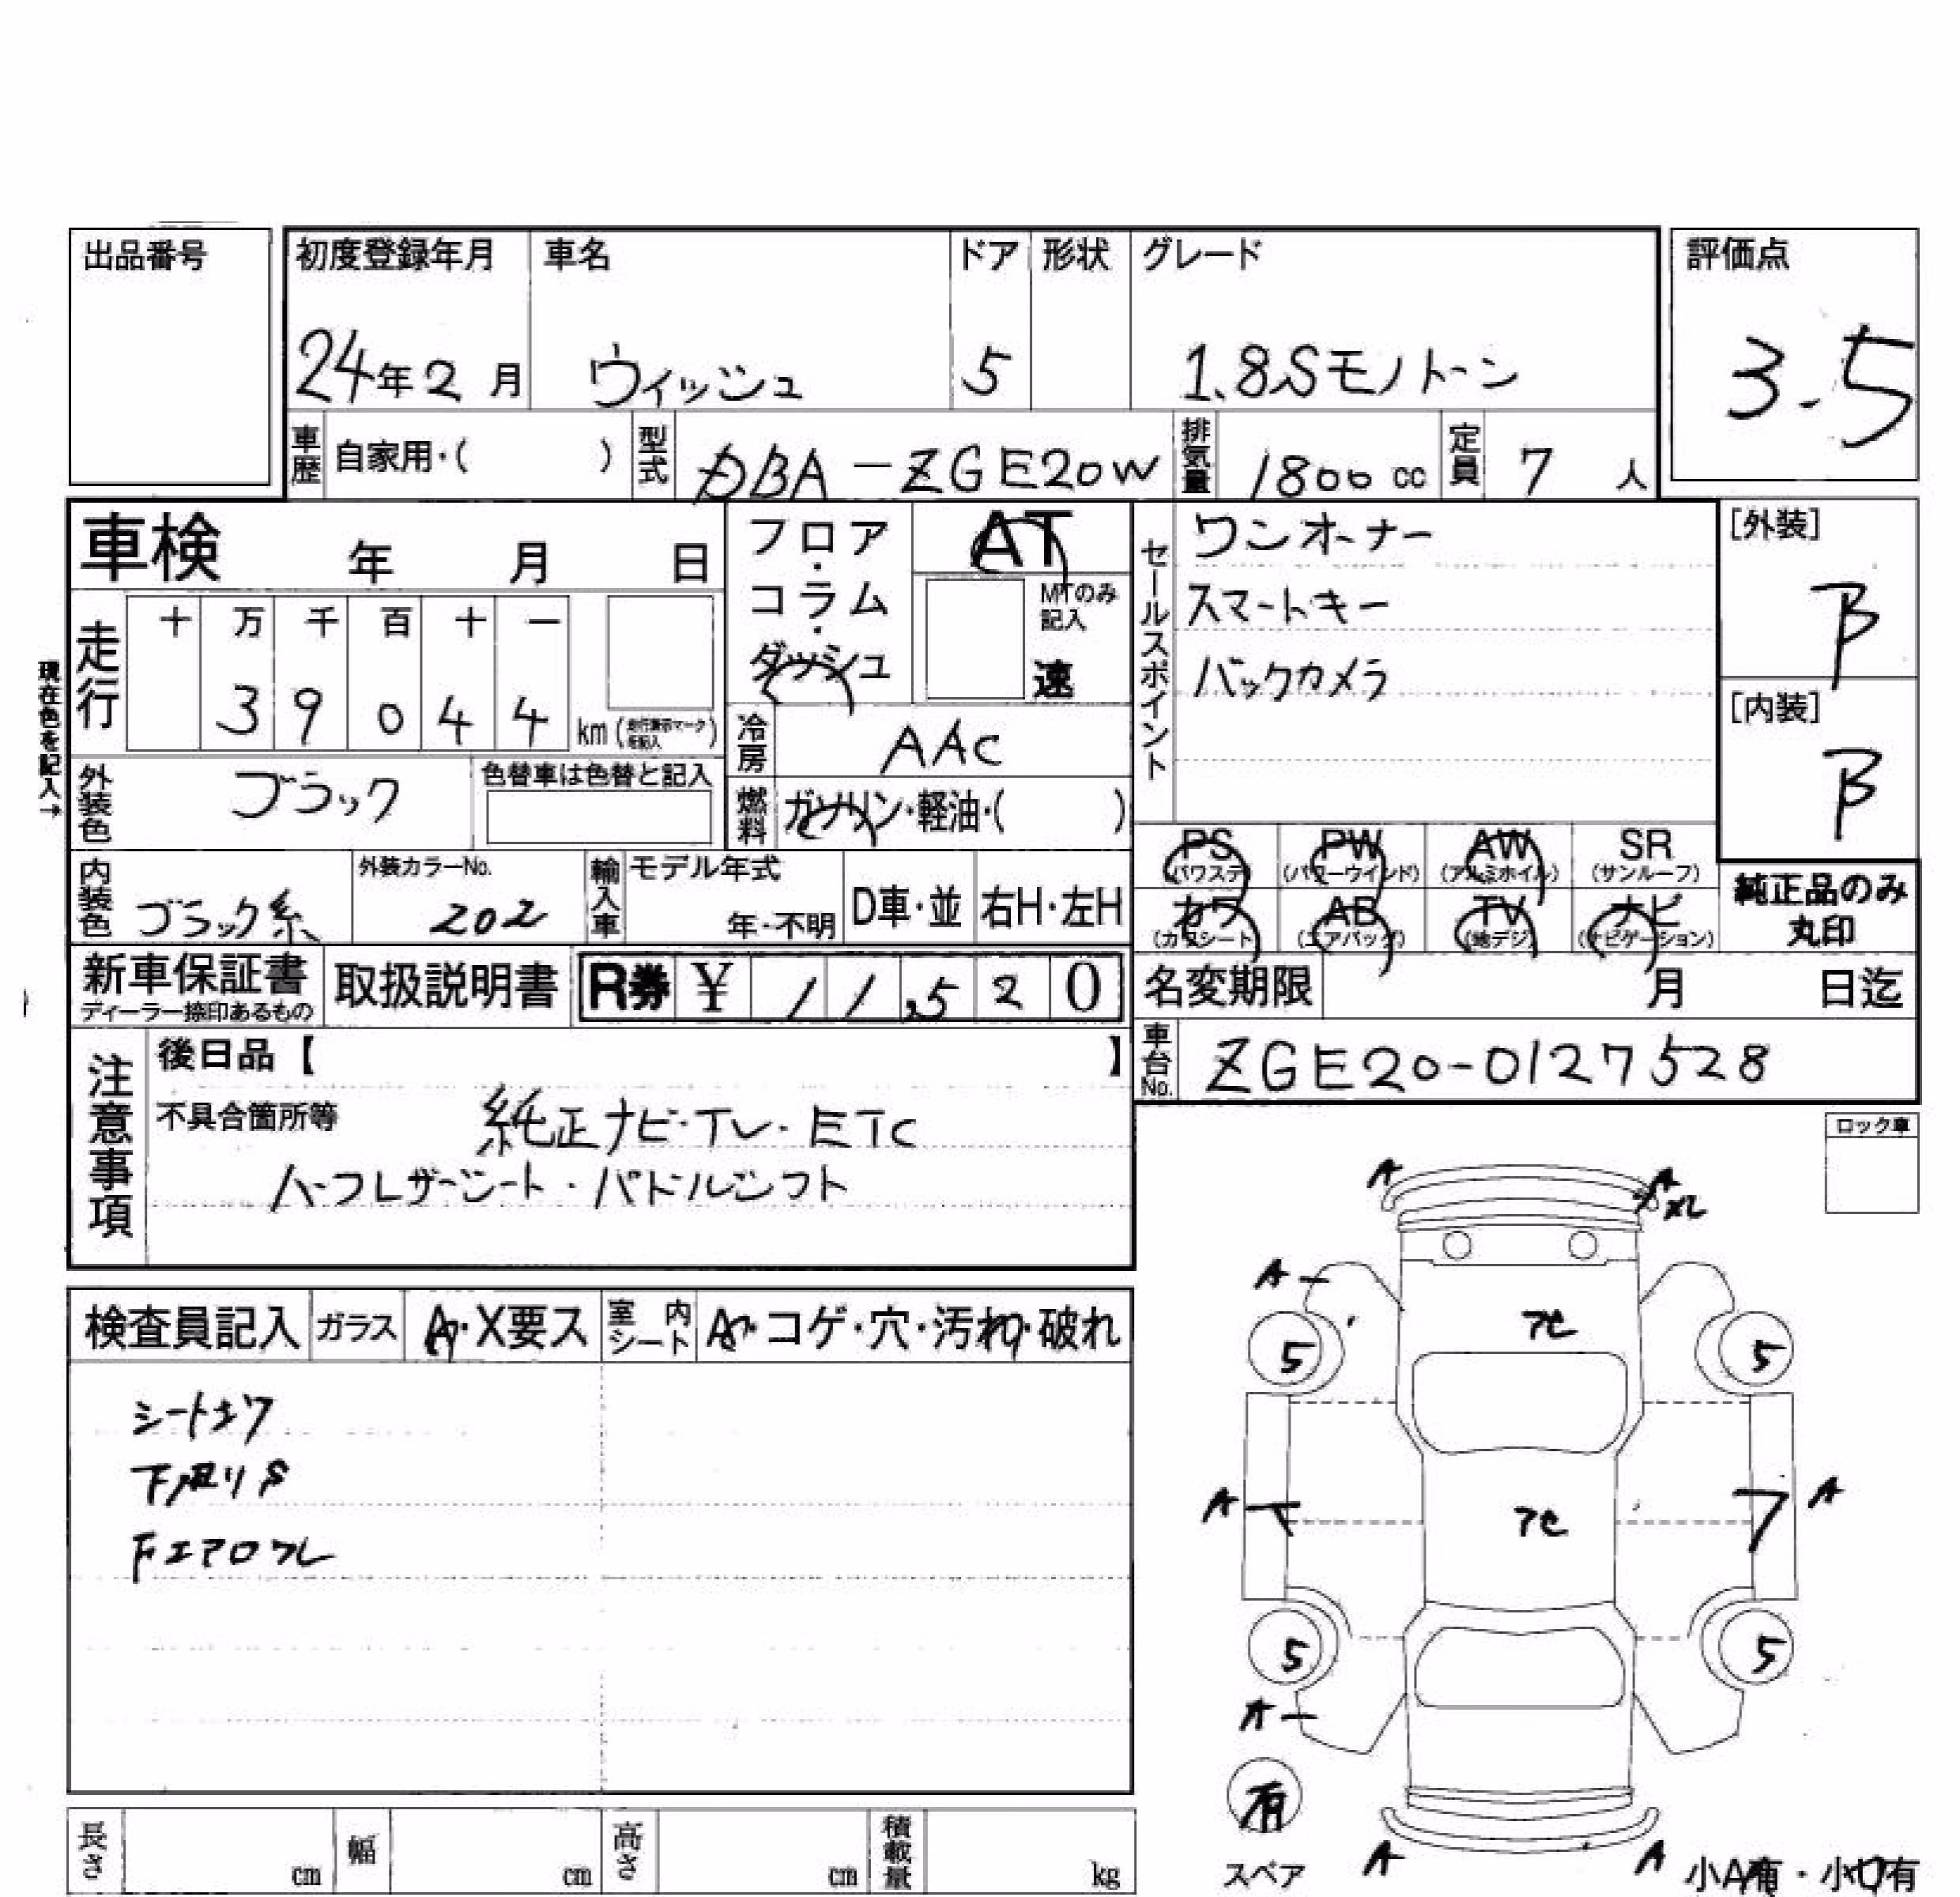 出品番号
初度登録年月 車名 ドア 形状 グレード
評価点
24年2月 ウィッシュ 5 1.8Sモノトーン
3.5
車歴 自家用・( ) 型式 DBA-ZGE20W 排気量 1800cc 定員 7人
車検 年 月 日
フロア・コラム・ダッシュ AT
MTのみ記入
速
セールスポイント
ワンオーナー
スマートキー
バックカメラ
[外装]
B
[内装]
B
現在色を記入→
走行 十 万 千 百 十 一
3 9 0 4 4 km(走行表示マークを記入)
冷房 AAC
外装色 ブラック 色替車は色替と記入
燃料 ガソリン・軽油・( )
PS (パワステ) PW (パワーウインド) AW (アルミホイル) SR (サンルーフ)
カワ (カワシート) AB (エアバッグ) TV (地デジ) ナビ (ナビゲーション)
純正品のみ丸印
内装色 ブラック系 外装カラーNo. 202 輸入車 モデル年式 年・不明 D車・並 右H・左H
新車保証書 ディーラー捺印あるもの 取扱説明書 R券 ¥ 11,520
名変期限 月 日迄
車台No. ZGE20-0127528
注意事項
後日品【 】
不具合箇所等 純正ナビ・TV・ETC
ハーフレザーシート・パドルシフト
ロック車
検査員記入 ガラス A・X要ス 室内シート A・コゲ・穴・汚れ・破れ
シートキワ
下廻りS
Fエアロワレ
A A
A
5 5
A A
5 5
A
有
スペア
A A
小A有・小U有
長さ cm 幅 cm 高さ cm 積載量 kg